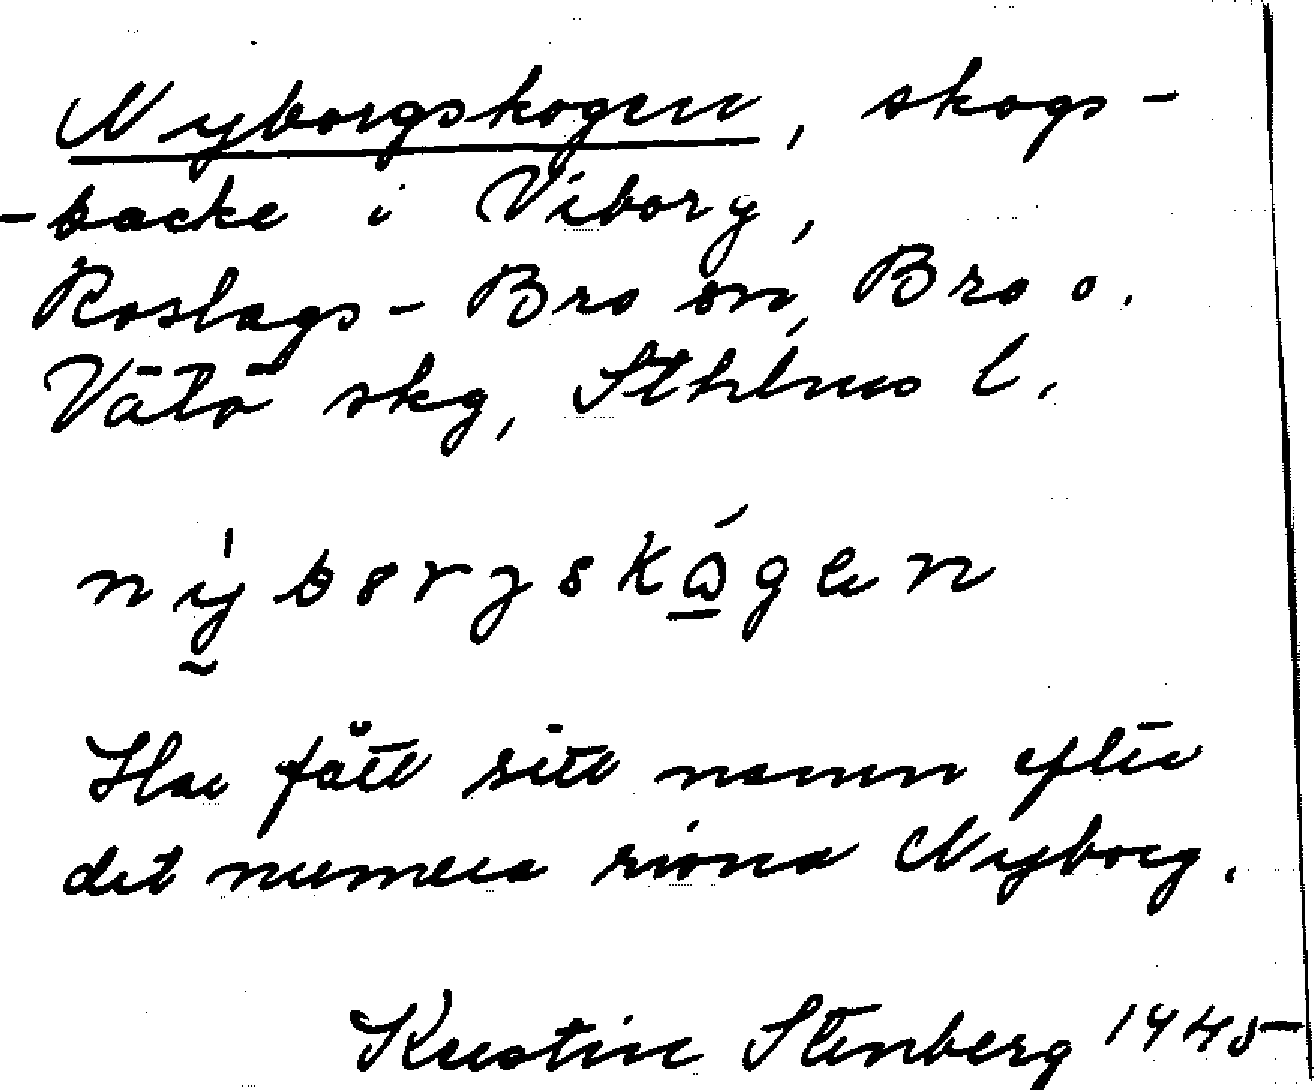 Nyborgskogen, skogs-
-backe i Viborg,
Roslags-Bro sn, Bro o.
Vätö skg, Sthlms l.
nyborjskågen
Har fått sitt namn efter
det numera rivna Nyborg.
Kerstin Stenberg 1945